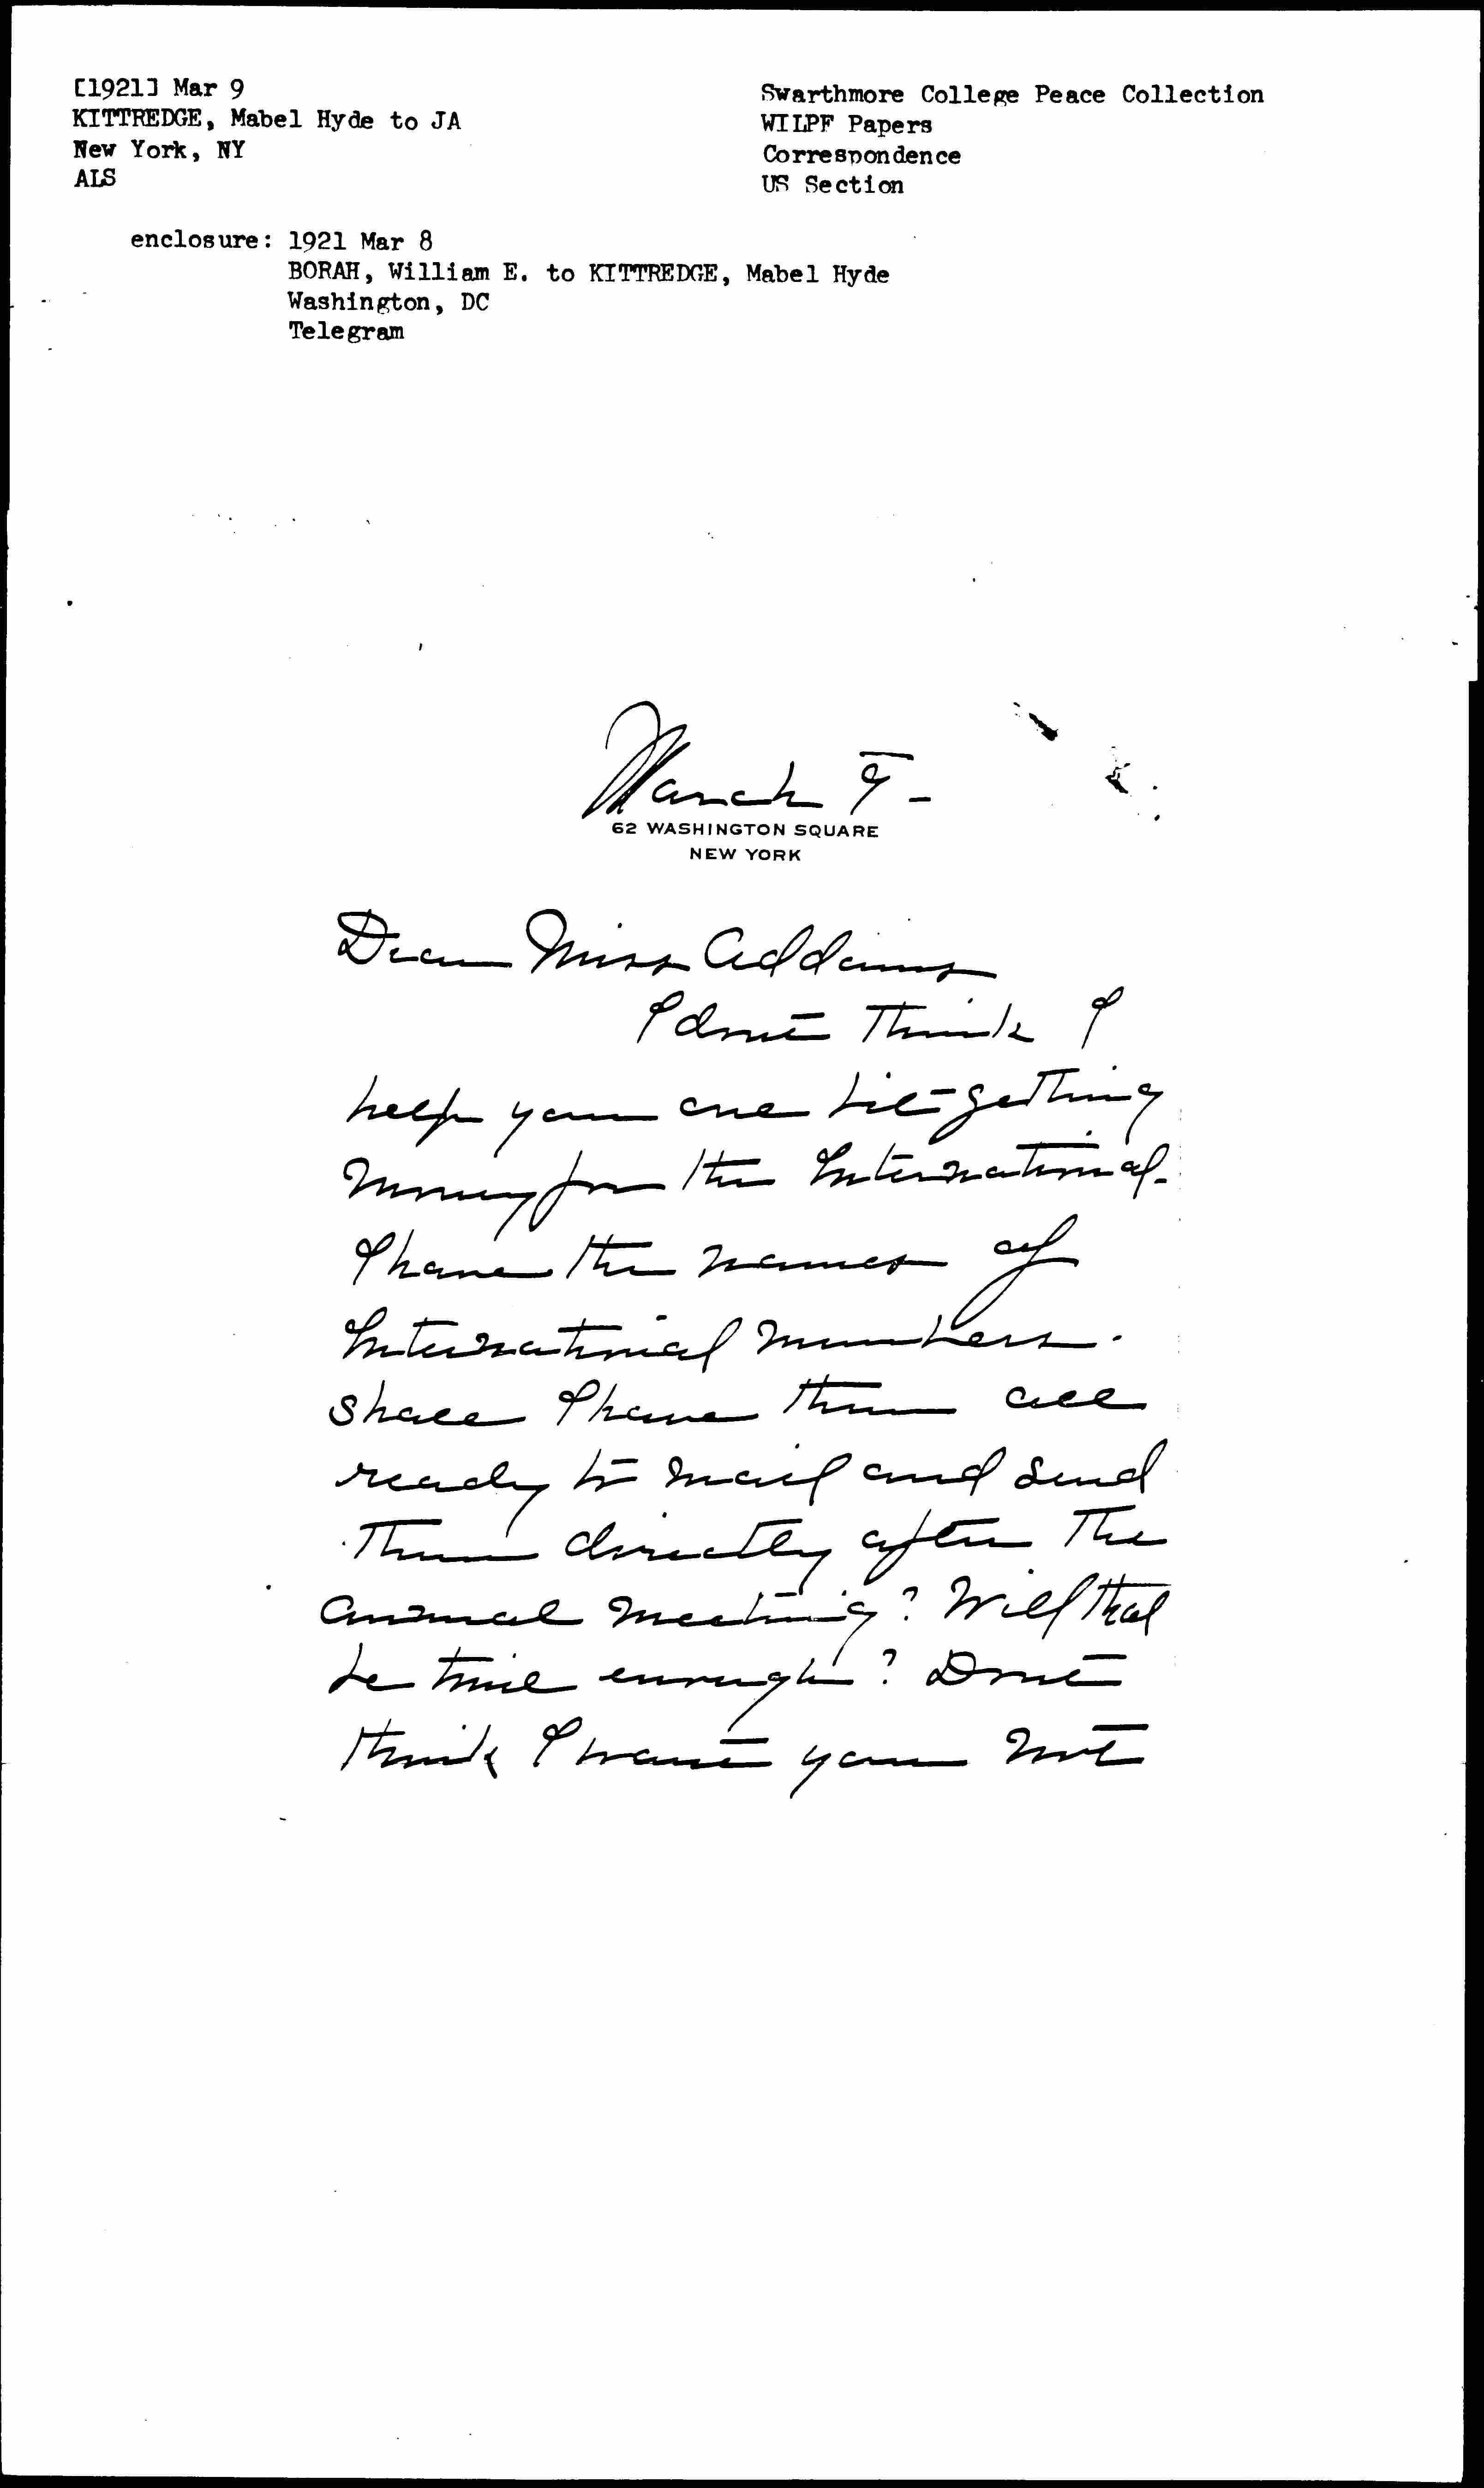 [1921] Mar 9
KITTREDGE, Mabel Hyde to JA
New York, NY
ALS
Swarthmore College Peace Collection
WILPF Papers
Correspondence
US Section
enclosure: 1921 Mar 8
BORAH, William E. to KITTREDGE, Mabel Hyde
Washington, DC
Telegram
March 9-
62 WASHINGTON SQUARE
NEW YORK
Dear Miss Addams
I don't think I
help you one bit getting
money for the International.
I have the names of
International members.
Shall I have them all
ready to mail and send
them directly after the
annual meeting? Will that
be time enough? Don't
think I want you not